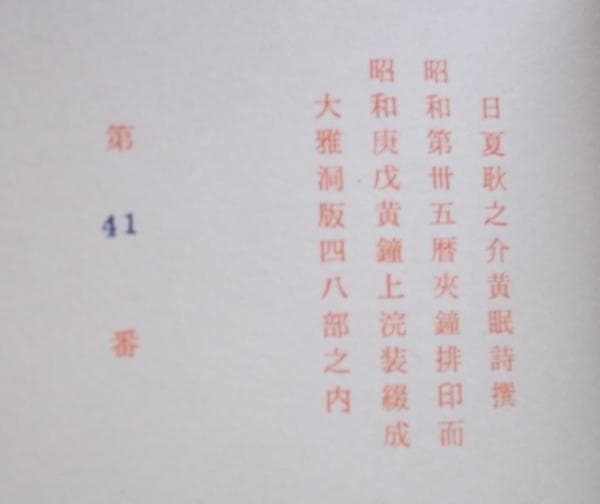 日夏耿之介黄眠詩撰
昭和第卅五暦夾鐘排印而
昭和庚戌黄鐘上浣装綴成
大雅洞版四八部之内
第 41 番